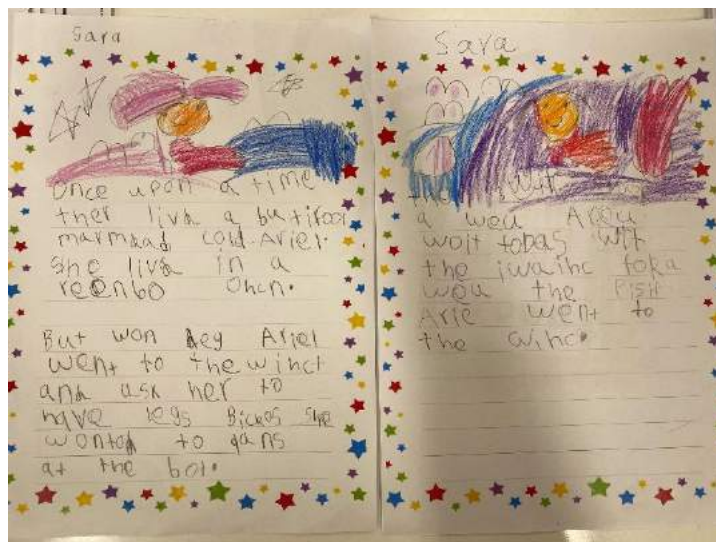 Sara
Once upon a time
ther livd a butifool
marmaad cold Ariel.
She livd in a
reenbo Ohcn.
But won dey Ariel
went to the winct
and ask her to
have legs Bickos she
wonted to dans
at the bol.
Sara
the wur
a weu Areu
woit to bas wit
the
weu the Pish
Arie went to
the